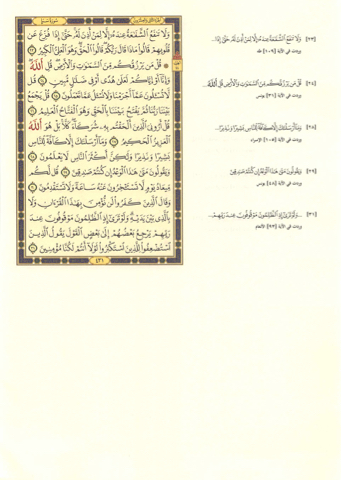 سورة سبأ
وَلَا تَنفَعُ ٱلشَّفَٰعَةُ عِندَهُۥٓ إِلَّا لِمَنْ أَذِنَ لَهُۥ حَتَّىٰٓ إِذَا فُزِّعَ عَن
قُلُوبِهِمْ قَالُوا۟ مَاذَا قَالَ رَبُّكُمْ قَالُوا۟ ٱلْحَقَّ وَهُوَ ٱلْعَلِىُّ ٱلْكَبِيرُ
قُلْ مَن يَرْزُقُكُم مِّنَ ٱلسَّمَٰوَٰتِ وَٱلْأَرْضِ قُلِ ٱللَّهُ
وَإِنَّآ أَوْ إِيَّاكُمْ لَعَلَىٰ هُدًى أَوْ فِى ضَلَٰلٍ مُّبِينٍ قُل
لَّا تُسْـَٔلُونَ عَمَّآ أَجْرَمْنَا وَلَا نُسْـَٔلُ عَمَّا تَعْمَلُونَ قُلْ يَجْمَعُ
بَيْنَنَا رَبُّنَا ثُمَّ يَفْتَحُ بَيْنَنَا بِٱلْحَقِّ وَهُوَ ٱلْفَتَّاحُ ٱلْعَلِيمُ
قُلْ أَرُونِىَ ٱلَّذِينَ أَلْحَقْتُم بِهِۦ شُرَكَآءَ كَلَّا بَلْ هُوَ ٱللَّهُ
ٱلْعَزِيزُ ٱلْحَكِيمُ وَمَآ أَرْسَلْنَٰكَ إِلَّا كَآفَّةً لِّلنَّاسِ
بَشِيرًا وَنَذِيرًا وَلَٰكِنَّ أَكْثَرَ ٱلنَّاسِ لَا يَعْلَمُونَ
وَيَقُولُونَ مَتَىٰ هَٰذَا ٱلْوَعْدُ إِن كُنتُمْ صَٰدِقِينَ قُل لَّكُم
مِّيعَادُ يَوْمٍ لَّا تَسْتَـْٔخِرُونَ عَنْهُ سَاعَةً وَلَا تَسْتَقْدِمُونَ
وَقَالَ ٱلَّذِينَ كَفَرُوا۟ لَن نُّؤْمِنَ بِهَٰذَا ٱلْقُرْءَانِ وَلَا
بِٱلَّذِى بَيْنَ يَدَيْهِ وَلَوْ تَرَىٰٓ إِذِ ٱلظَّٰلِمُونَ مَوْقُوفُونَ عِندَ
رَبِّهِمْ يَرْجِعُ بَعْضُهُمْ إِلَىٰ بَعْضٍ ٱلْقَوْلَ يَقُولُ ٱلَّذِينَ
ٱسْتُضْعِفُوا۟ لِلَّذِينَ ٱسْتَكْبَرُوا۟ لَوْلَآ أَنتُمْ لَكُنَّا مُؤْمِنِينَ
٤٣١
[٢٣] وَلَا تَنفَعُ ٱلشَّفَٰعَةُ عِندَهُۥٓ إِلَّا لِمَنْ أَذِنَ لَهُۥ حَتَّىٰٓ إِذَا...
وردت في الآية [١٠٩] طه
[٢٤] قُلْ مَن يَرْزُقُكُم مِّنَ ٱلسَّمَٰوَٰتِ وَٱلْأَرْضِ قُلِ ٱللَّهُ...
وردت في الآية [٣١] يونس
[٢٨] وَمَآ أَرْسَلْنَٰكَ إِلَّا كَآفَّةً لِّلنَّاسِ بَشِيرًا وَنَذِيرًا...
وردت في الآية [١٠٥] الإسراء
[٢٩] وَيَقُولُونَ مَتَىٰ هَٰذَا ٱلْوَعْدُ إِن كُنتُمْ صَٰدِقِينَ
وردت في الآية [٤٨] يونس
[٣١] ...وَلَوْ تَرَىٰٓ إِذِ ٱلظَّٰلِمُونَ مَوْقُوفُونَ عِندَ رَبِّهِمْ...
وردت في الآية [٩٣] الأنعام